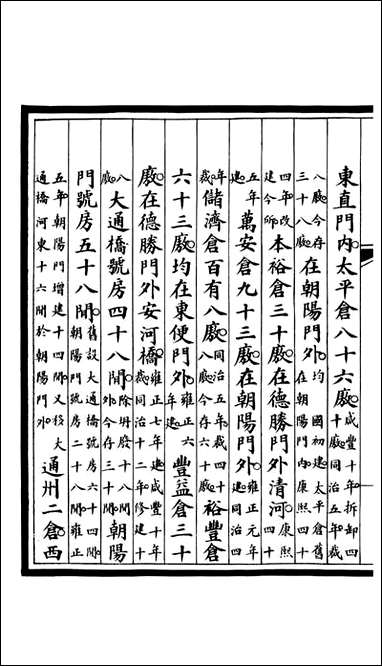 東直門内太平倉八十六廒咸豐十年拆卸四十廒同治五年裁
八廒今存三十八廒在朝陽門外均國初建太平倉舊在朝陽門内康熙四十
四年改建今所本裕倉三十廒在德勝門外清河康熙四十
五年建萬安倉九十三廒在朝陽門外雍正元年建同治四
年裁儲濟倉百有八廒同治五年裁四十八廒今存六十廒裕豐倉
六十三廒均在東便門外雍正六年建豐益倉三十
廒在德勝門外安河橋雍正七年建咸豐十年裁同治十二年修建十
八廒大通橋號房四十八間除坍廢十八間外今存三十間朝陽
門號房五十八間舊設大通橋號房六十四間朝陽門號房二十八間雍正
五年朝陽門增建十四間又移大通橋河東十六間於朝陽門外通州二倉西